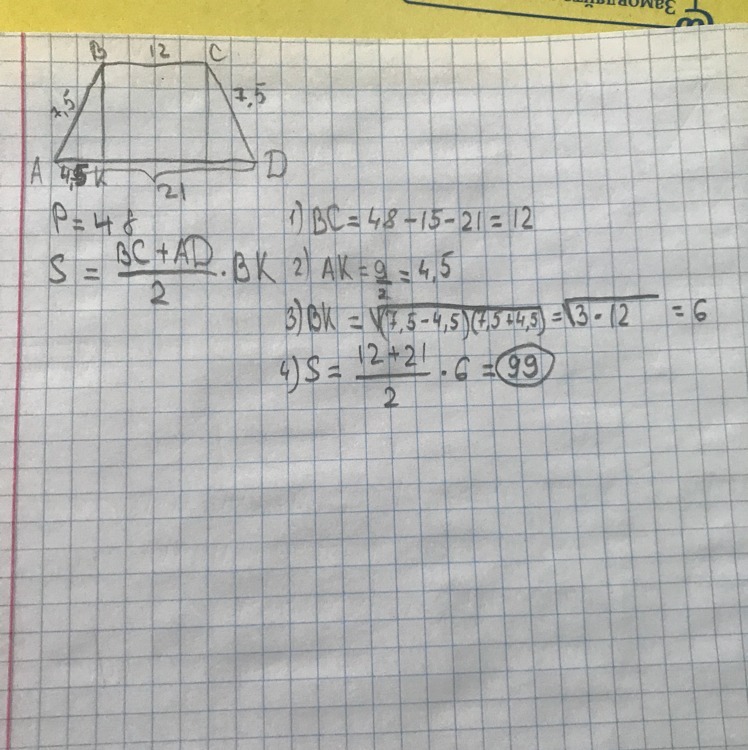 Замовляйте
B 12 C
7,5 7,5
A 4,5 K D
21
P = 48
S = \frac{BC + AD}{2} · BK
1) BC = 48 - 15 - 21 = 12
2) AK = \frac{9}{2} = 4,5
3) BK = √(7,5 - 4,5)(7,5 + 4,5) = √3 · 12 = 6
4) S = \frac{12 + 21}{2} · 6 = 99